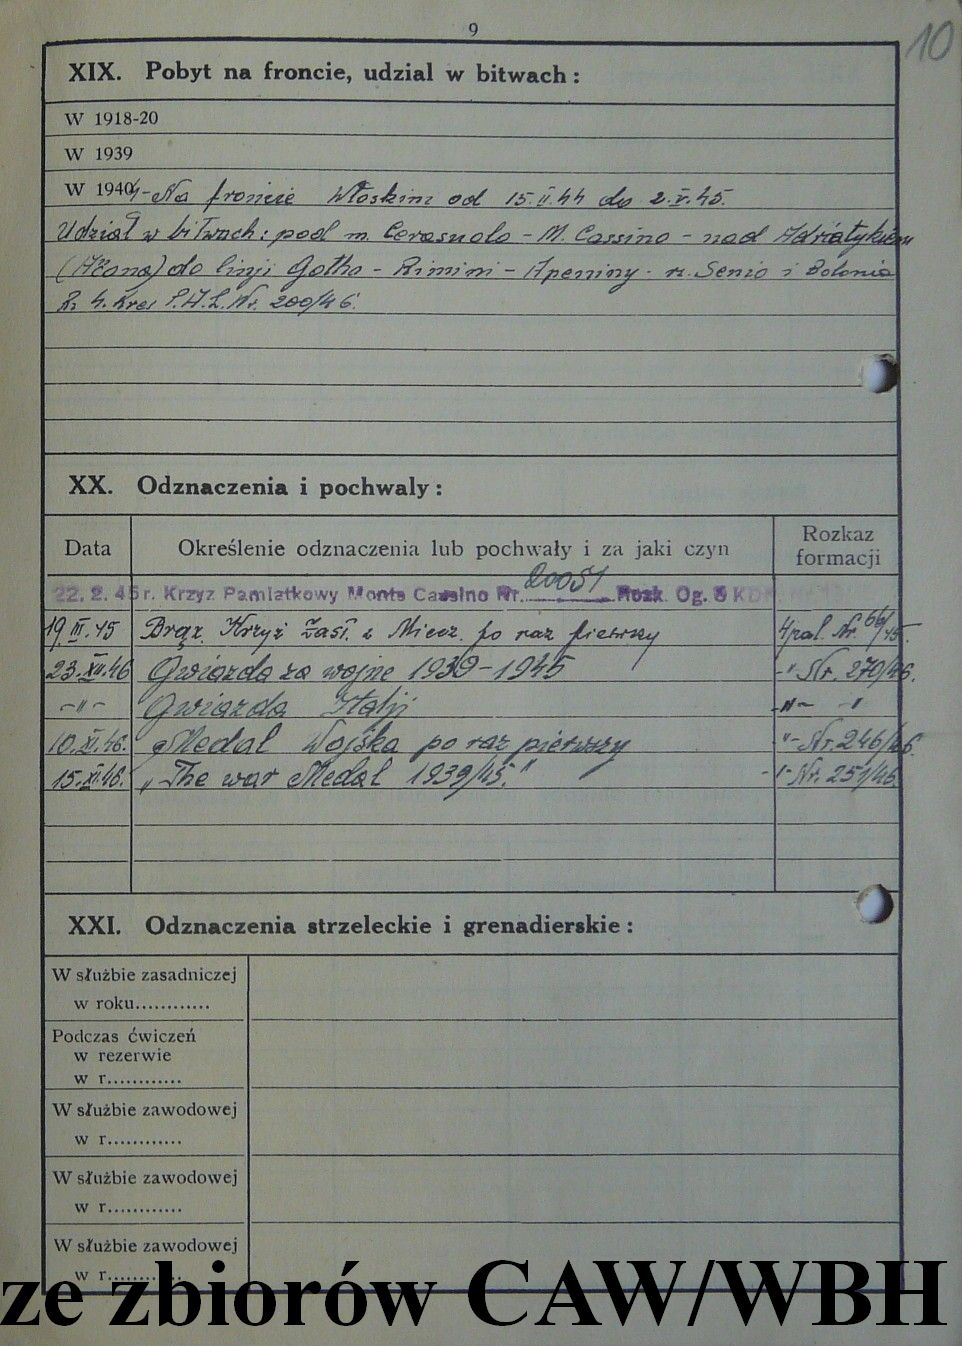 9
10
XIX. Pobyt na froncie, udzial w bitwach:
W 1918-20
W 1939
W 1944 - Na froncie Włoskim od 15.II.44 do 2.V.45.
Udział w bitwach: pod m. Cerasuolo - M. Cassino - nad Adriatykiem
do linji Gotha - Rimini - Apeniny - rz. Senio i Bolonia
R. 4. Kres P.A.L. Nr. 200/46.
XX. Odznaczenia i pochwaly:
Data
Określenie odznaczenia lub pochwały i za jaki czyn
Rozkaz
formacji
22. 2. 45 r. Krzyz Pamiatkowy Monte Cassino Nr. 20051 Rozk. Og. 5 KDP
19.III.45 Brąz. Krzyż Zasł. z Miecz. po raz pierwszy 4 pal. Nr. 66/45.
23.XII.46 Gwiazda za wojnę 1939-1945 -"- Nr. 270/46.
-"- Gwiazda Italji -"- -"
10.XI.46. Medal Wojska po raz pierwszy -"- Nr. 246/46.
15.XI.46. „The war Medal 1939/45." -"- Nr. 251/46.
XXI. Odznaczenia strzeleckie i grenadierskie:
W służbie zasadniczej
w roku............
Podczas ćwiczeń
w rezerwie
w r............
W służbie zawodowej
w r............
W służbie zawodowej
w r............
W służbie zawodowej
w r............
ze zbiorów CAW/WBH